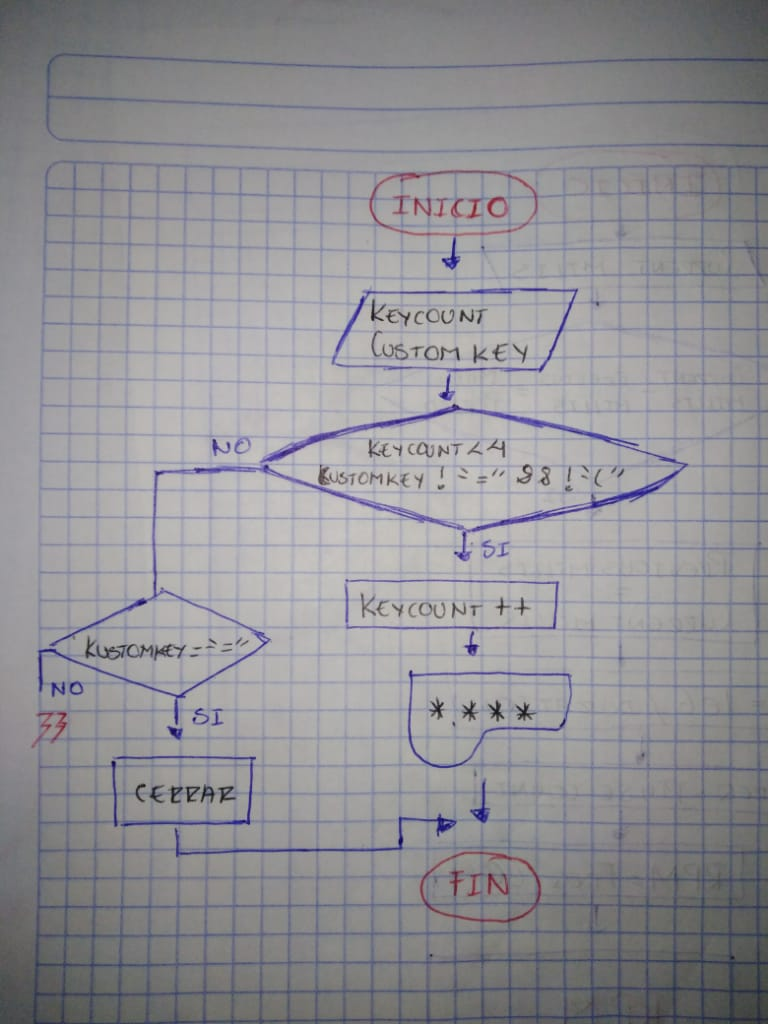 INICIO
KEYCOUNT
CUSTOM KEY
NO
KEYCOUNT<4
KUSTOMKEY
SI
KEYCOUNT ++
KUSTOMKEY
NO
SI
* * * *
CERRAR
FIN